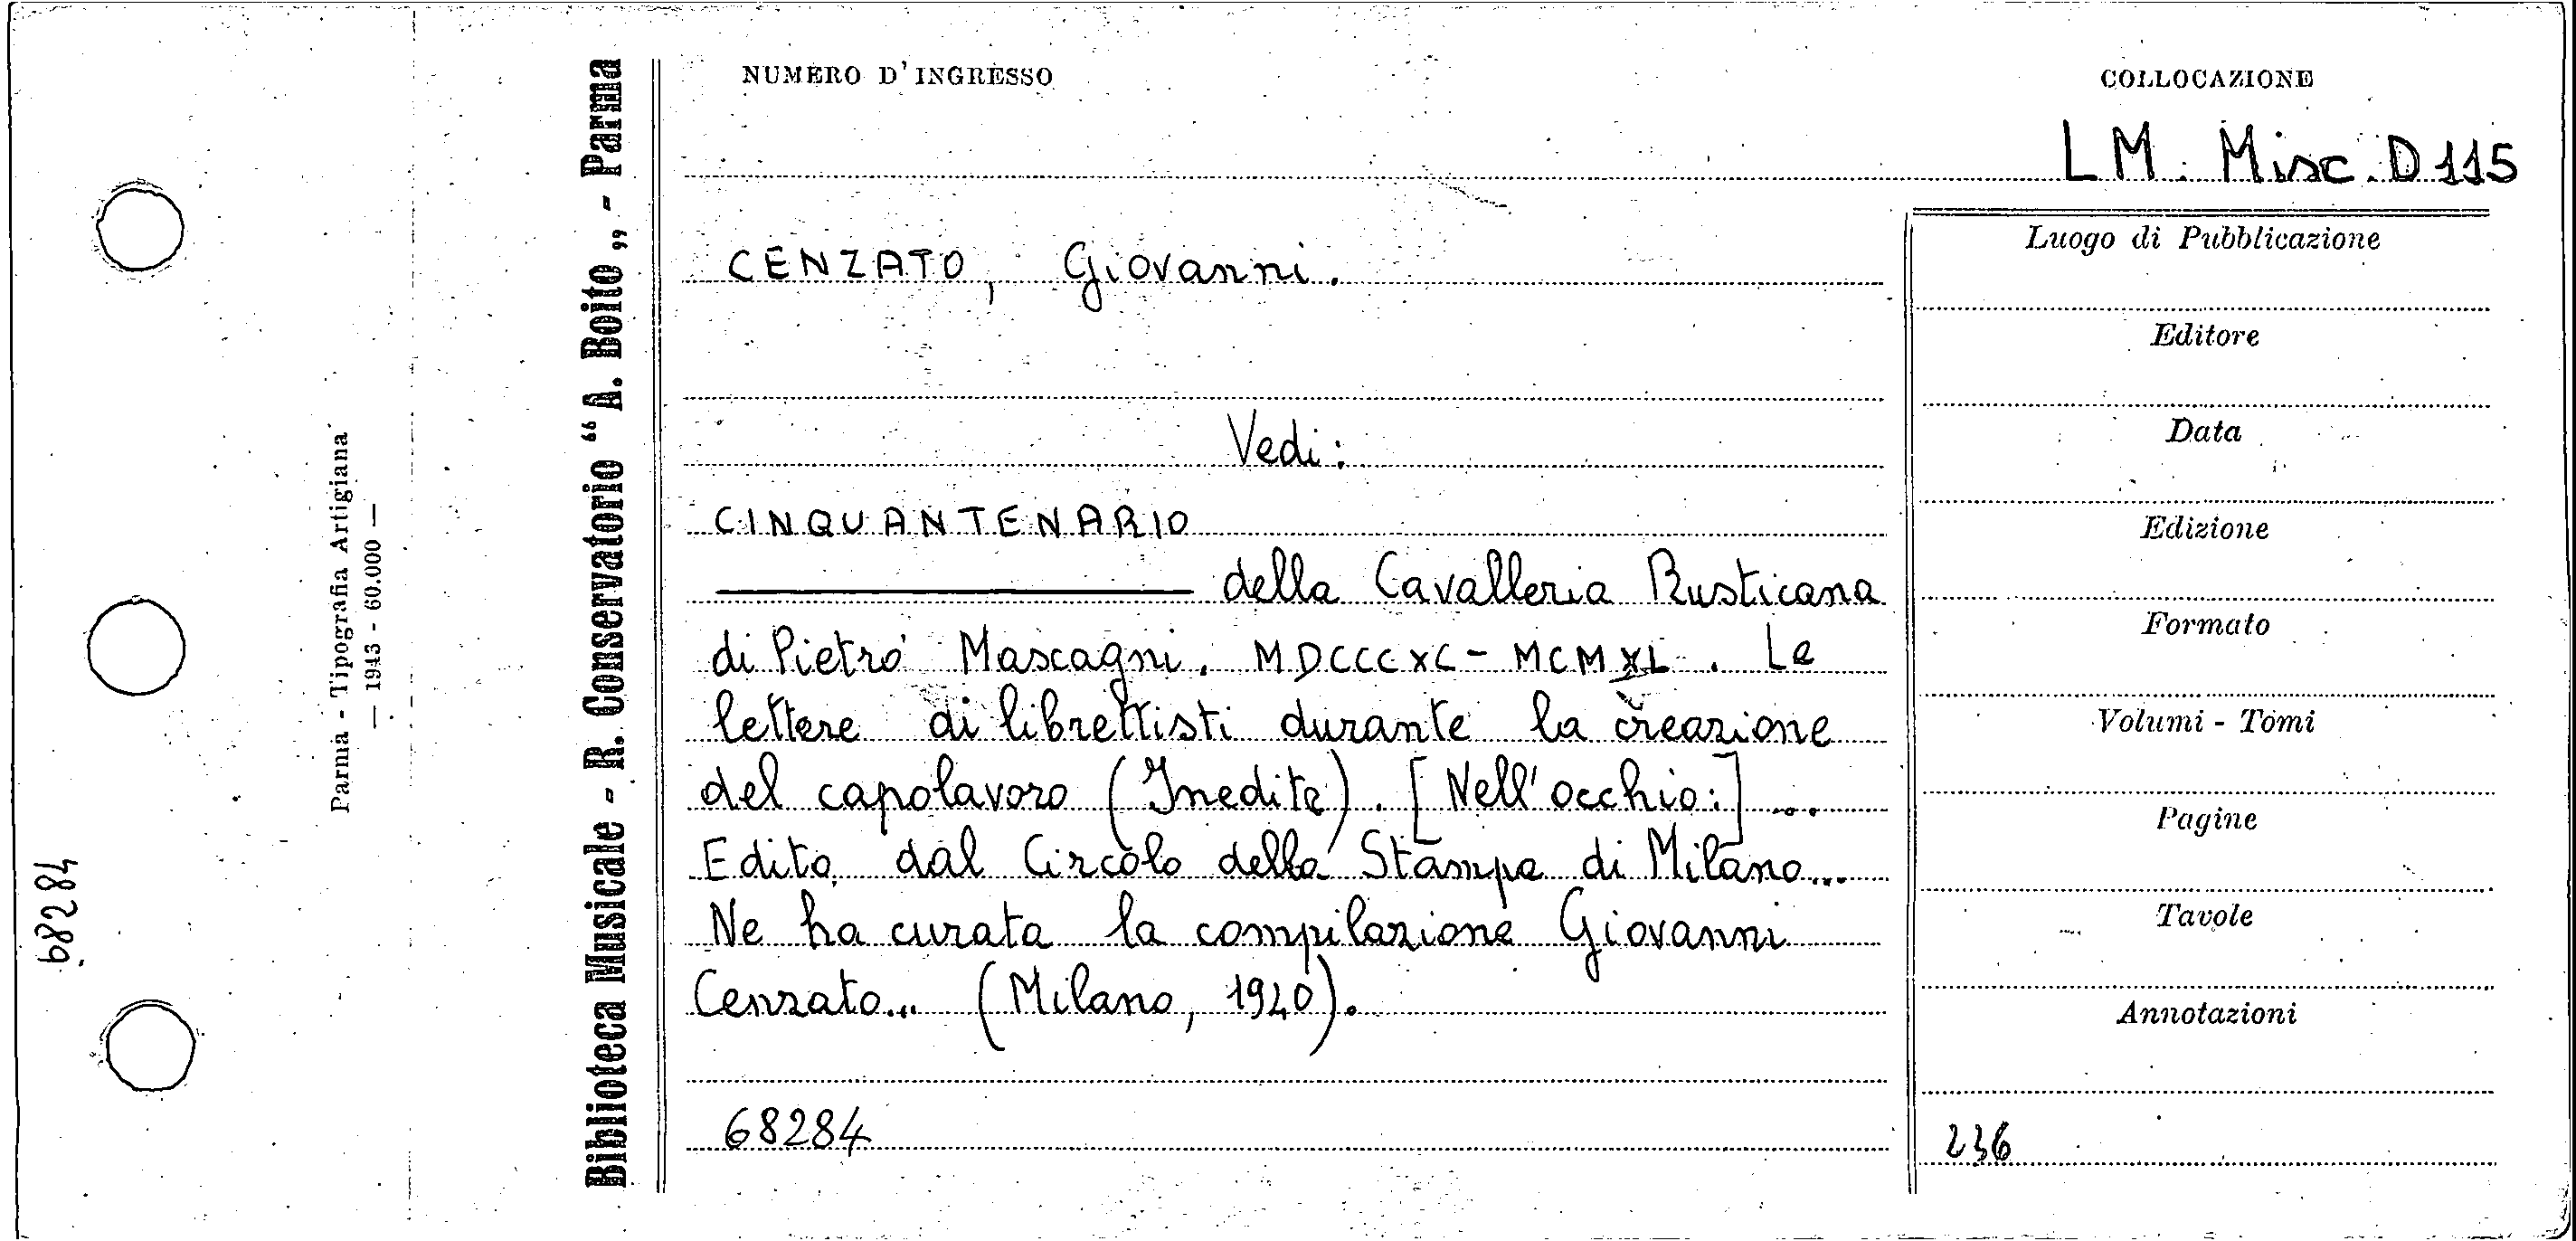 NUMERO D'INGRESSO
COLLOCAZIONE
LM. Misc. D 115
CENZATO, Giovanni.
Vedi:
CINQUANTENARIO
della Cavalleria Rusticana
di Pietro Mascagni. MDCCCXC - MCMXL. Le
lettere di librettisti durante la creazione
del capolavoro (Inedite). [Nell'occhio:] ...
Edito dal Circolo della Stampa di Milano...
Ne ha curata la compilazione Giovanni
Cenzato... (Milano, 1940).
68284
Luogo di Pubblicazione
Editore
Data
Edizione
Formato
Volumi - Tomi
Pagine
Tavole
Annotazioni
236
Biblioteca Musicale - R. Conservatorio “A. Boito„ - Parma
Parma - Tipografia Artigiana
— 1943 - 60.000 —
68284